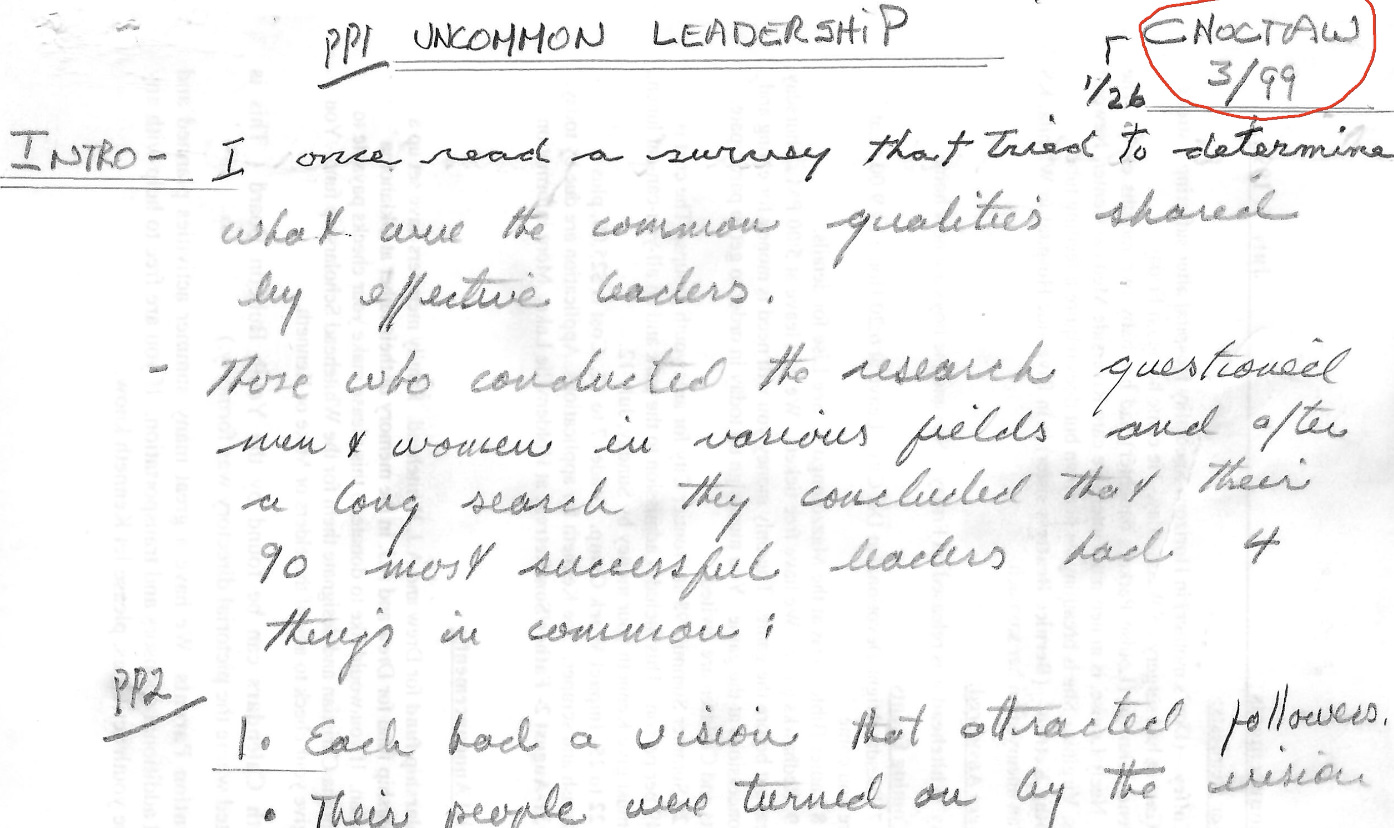 PP1 UNCOMMON LEADERSHIP
CHOCTAW
3/99
1/26
INTRO - I once read a survey that tried to determine
what were the common qualities shared
by effective leaders.
- Those who conducted the research questioned
men & women in various fields and after
a long search they concluded that their
90 most successful leaders had 4
things in common:
PP2
1. Each had a vision that attracted followers.
• Their people were turned on by the vision